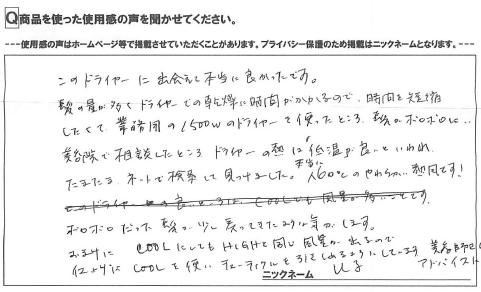 Q商品を使った使用感の声を聞かせてください。
---使用感の声はホームページ等で掲載させていただくことがあります。プライバシー保護のため掲載はニックネームとなります。---
このドライヤーに出会えて本当に良かったです。
髪の量が多くドライヤーでの乾燥に時間がかかるので、時間を短縮
したくて、業務用の1500wのドライヤーを使ったところ、髪がボロボロに…
美容院で相談したところ ドライヤーの熱は「低温が良い」といわれ、
たまたま、ネットで検索して見つけました。本当に 60℃のやわらかい熱風です!
このドライヤーの良いところは COOLにしても風量が多いことです。
ボロボロだった髪が少し戻ってきたような気がします。
おまけに COOLにしてもHIGHと同じ風量が出るので
仕上げに COOLを使い キューティクルを引きしめるようにしています
美容師さん
アドバイス
ニックネーム